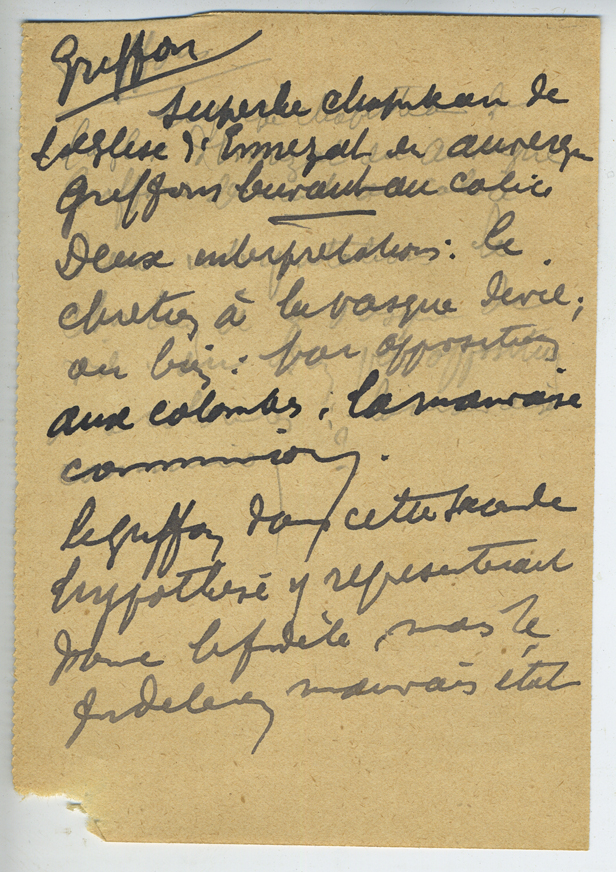 Griffon
Superbe chapiteau de
l'Eglise d'Ennezat en auvergn
Griffons buvant au calice
Deux interprétations : le
chretien à la vasque de vie ;
ou bien : par opposition
aux colombes, la mauvaise
communion.
le griffon dans cette seconde
hypothèse y représenterait
donc le fidèle, mais le
fidele en mauvais état